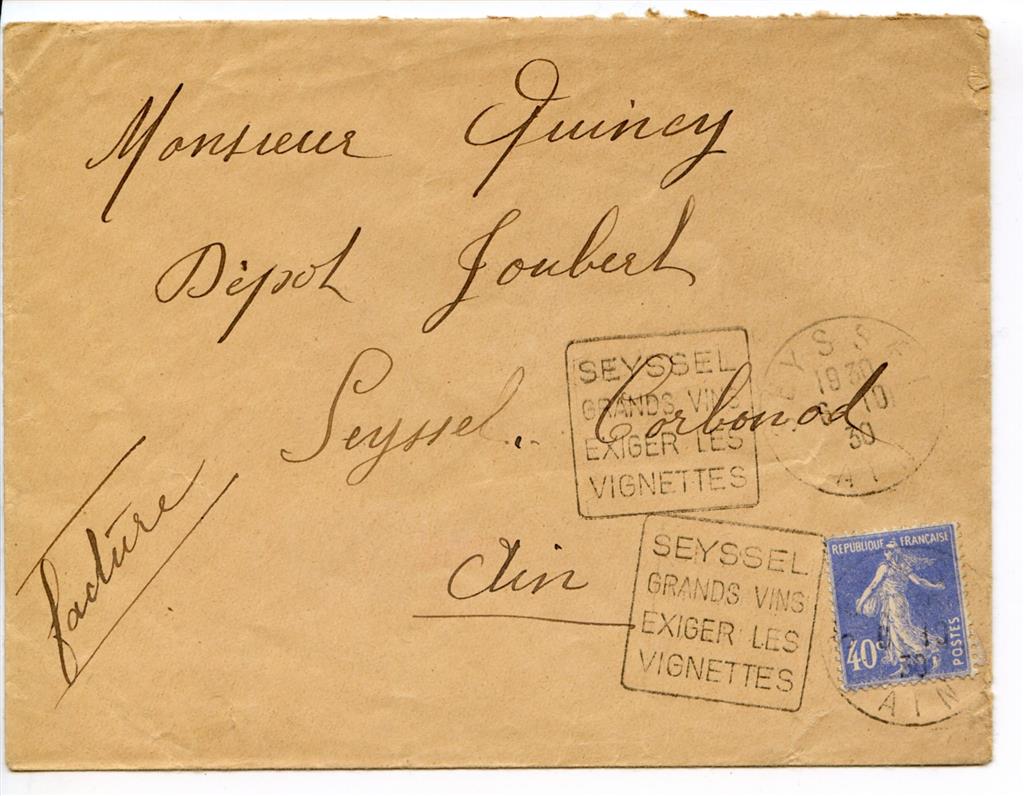 Monsieur Quincy
Dépot Joubert
Seyssel. Corbonod
Ain
facture
SEYSSEL
GRANDS VINS
EXIGER LES
VIGNETTES
SEYSSEL
1930
10
30
AIN
SEYSSEL
GRANDS VINS
EXIGER LES
VIGNETTES
REPUBLIQUE FRANÇAISE
40c
POSTES
30
AIN